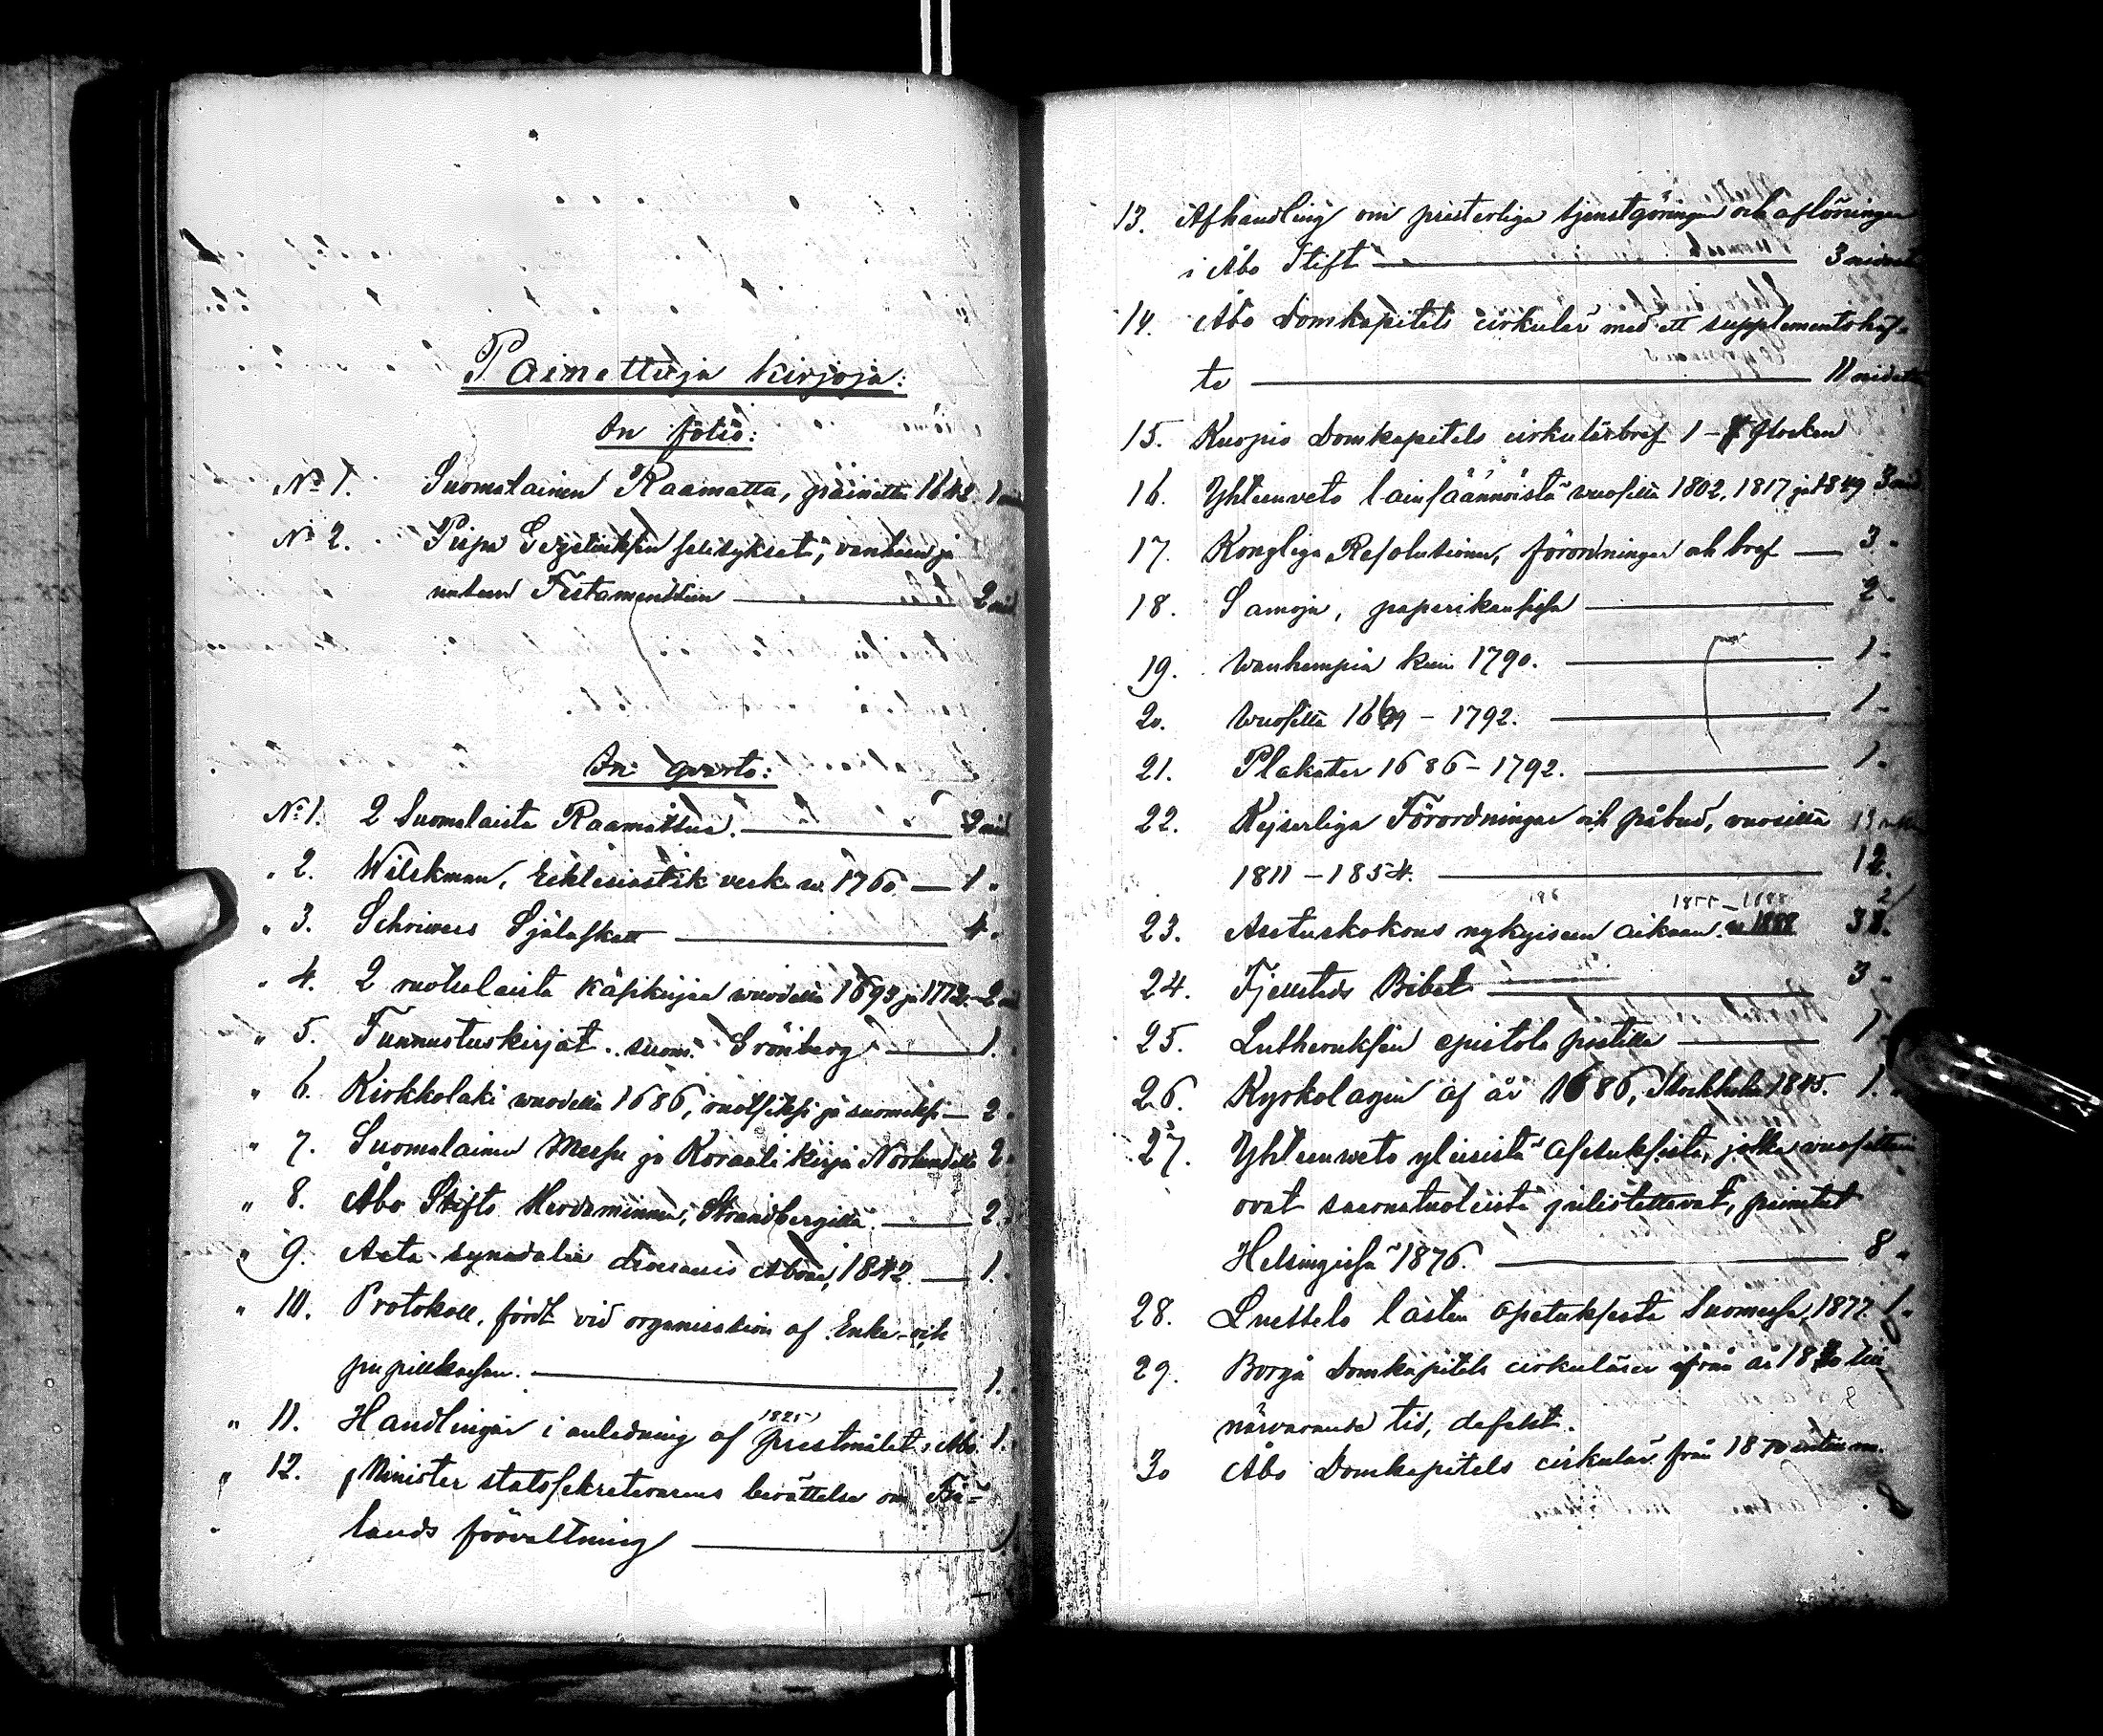 Painettuja kirjoja:
In folio:
No 1. Suomalainen Raamattu, painettu 1642 1 nid
No 2. Piipa selitykset, vanhaan ja
uuteen Testamenttiin 2 nid.
In qvarto:
No 1. 2 Suomalaista Raamattua. 2 nid
" 2. Wilskman, Ecklesiastik verk w. 1760 1 "
" 3. Schrivers Själaskatt 4 "
" 4. 2 ruotsalaista käsikirjaa vuodelta 1693 ja 2 nid
" 5. Tunnustuskirjat. suom. Grönberg 1. "
" 6. Kirkkolaki vuodelta 1686, ruotsiksi ja suomeksi 2 "
" 7. Suomalainen Messu ja Koraali kirja Nordlundilta 2 "
" 8. Åbo Stifts Herdaminnen, Strandbergiltä. 2 "
" 9. Acta synodalia dioecesis Aboae, 1842 1. "
" 10. Protokoll, fördt vid organisation af Enke- och
pupillkassan. 1. "
1825
" 11. Handlingar i anledning af prestmötet i Åbo 1. "
" 12. Minister statssekreterarens berättelse om Fin-
lands förvaltning 1
13. Afhandling om presterliga tjenstgöringar och aflöningar
i Åbo Stift 3 nidosta
14. Åbo Domkapitels cirkulär med ett supplementshäf-
te 11 nidettä
15. Kuopio Domkapitels cirkulärbref 1 -
16. Yhteenveto lainsäännöistä vuosilta 1802, 1817 ja 1849 3 nid
17. Kongliga Resolutioner, förordningar och bref 3 "
18. Samoja, paperikansissa 2 "
19. Wanhempia kuin 1790. 1 "
20. Vuosilta - 1792. 1 "
21. Plakater 1686 - 1792. 1 "
22. Kejserliga Förordningar och påbud, vuosilta
1811 - 1854. 12.
23. Asetuskokous nykyiseen aikaan.
24. Fjellsteds Bibel 3 "
25. Lutheruksen epistola postilla 1 "
26. Kyrkolagen af år 1686, Stockholm 1845. 1. "
27. Yhteenveto yleisistä asetuksista, jotka vuosittain
ovat saarnatuoleista julistettavat, painetut
Helsingissä 1876. 8 "
28. Luettelo lasten opetuksesta Suomessa, 1877. 1 "
29. Borgå Domkapitels cirkulärer ifrån år till
närvarande tid, defekt.
30 Åbo Domkapitels cirkulär från 1870